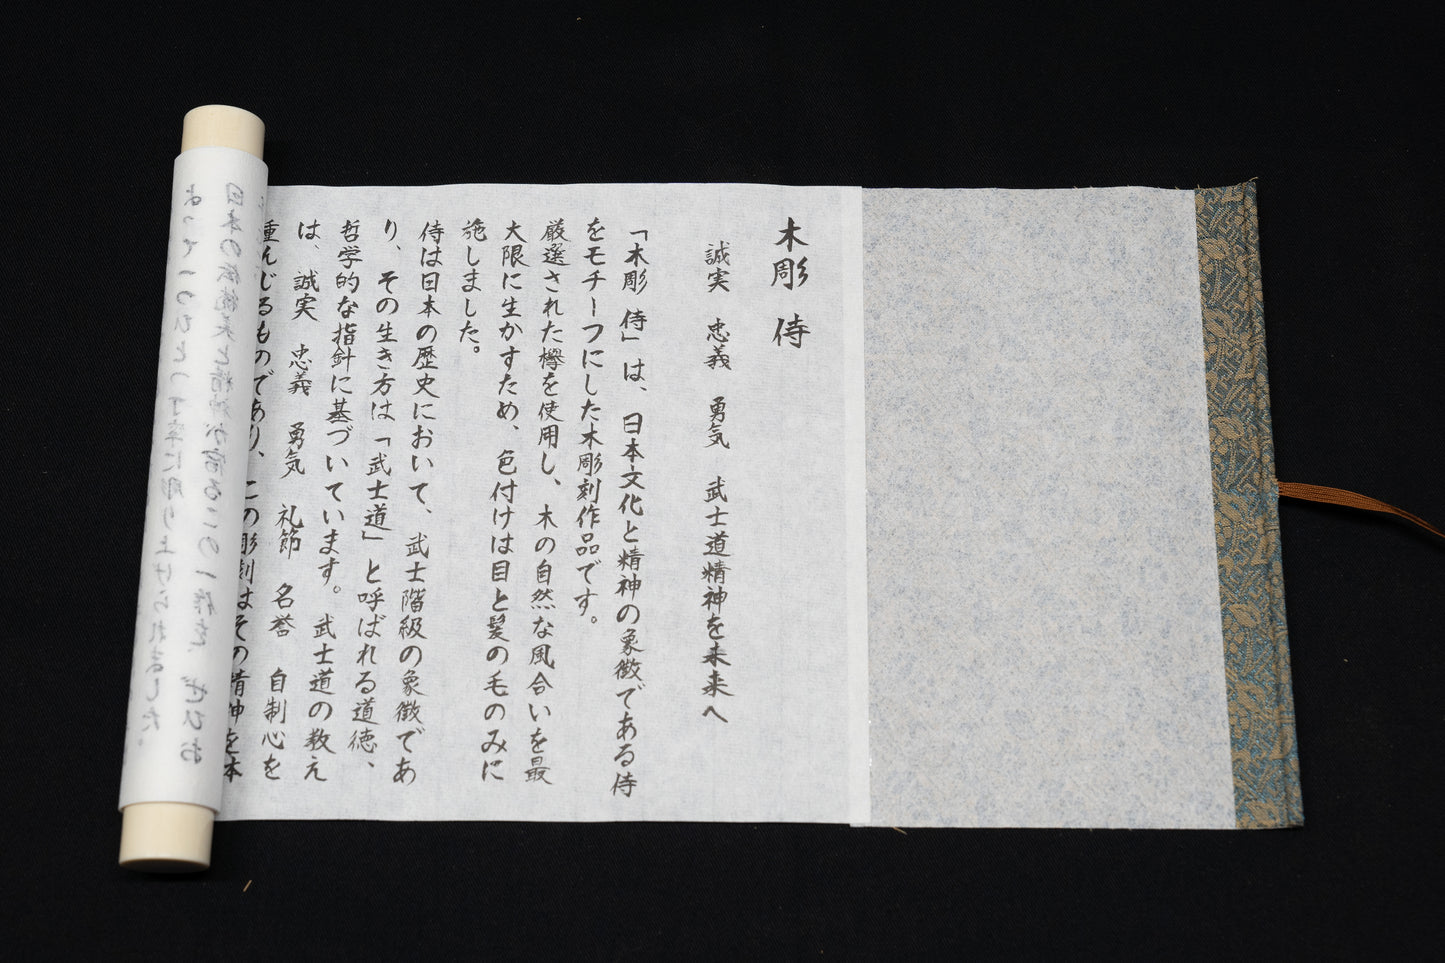 木彫 侍
誠実 忠義 勇気 武士道精神を未来へ
「木彫 侍」は、日本文化と精神の象徴である侍
をモチーフにした木彫刻作品です。
厳選された欅を使用し、木の自然な風合いを最
大限に生かすため、色付けは目と髪の毛のみに
施しました。
侍は日本の歴史において、武士階級の象徴であ
り、その生き方は「武士道」と呼ばれる道徳、
哲学的な指針に基づいています。武士道の教え
は、誠実 忠義 勇気 礼節 名誉 自制心を
重んじるものであり、この彫刻はその精神を
よって一つひとつ丁寧に彫り上げられました。
日本の伝統美と精神が宿るこの一作を、ぜひお